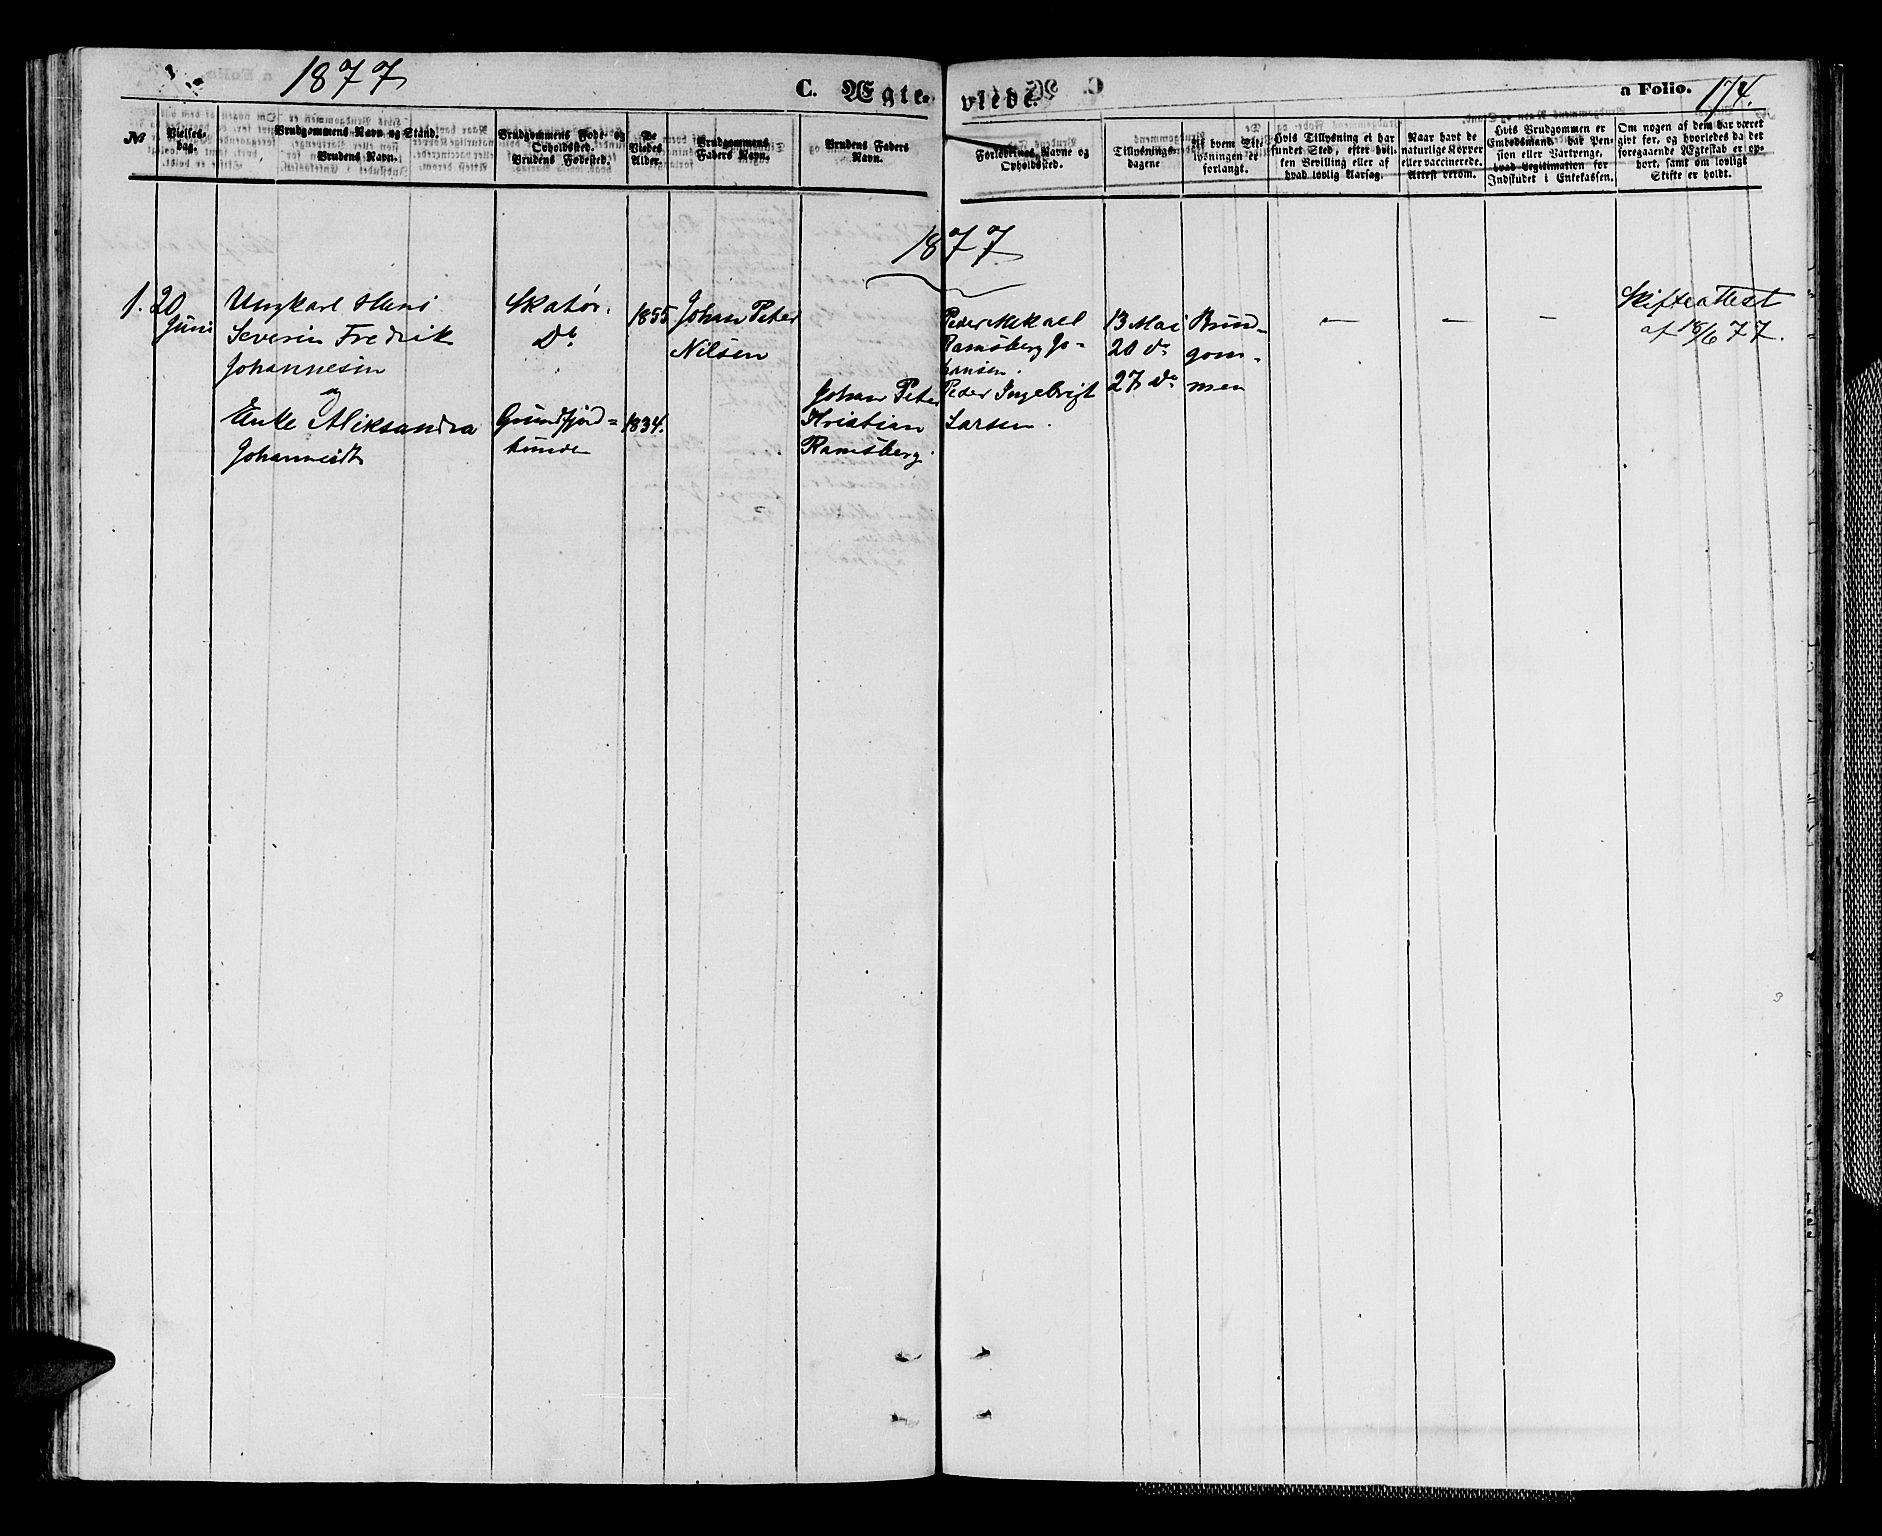 1877
C. Ægte-
viede.
a Folio.
174.
№
Vielses-
dag.
Brudgommens Navn og Stand.
Brudens Navn.
Brudgommens Føde- og
Opholdssted.
Brudens Fødested.
De
Viedes
Alder.
Brudgommens
Faders Navn.
Brudens Faders
Navn.
Forlovernes Navne og
Opholdssted.
Tillysnings-
dagene
Af hvem Til-
lysningen er
forlangt.
Hvis Tillysning ei har
fundet Sted, efter hvil-
ken Bevilling eller af
hvad lovlig Aarsag.
Naar havt de
naturlige Kopper
eller vaccinerede.
Attest derom.
Hvis Brudgommen er
Embedsmand, har Pen-
sion eller Vartpenge,
hvad Legitimation for
Indskudet i Enkekassen.
Om nogen af dem har været
gift før, og hvorledes da det
foregaaende Ægteskab er op-
hørt, samt om lovligt
Skifte er holdt.
1877
1. 20
Juni
Ungkarl Hans
Severin Fredrik
Johannesen
og
Enke Aleksandra
Johannesdt
Skatør.
Do
Grundfjord=
bunden
1855
1834.
Johan Peter
Nilsen
Johan Peter
Kristian
Ramsberg.
Peder Mikael
Ramsberg Jo-
hansen.
Peder Ingebrigt
Larsen.
13 Mai
20 do
27 do
Brud-
gom-
men
—
—
—
Skifteattest
af 18/6 77.